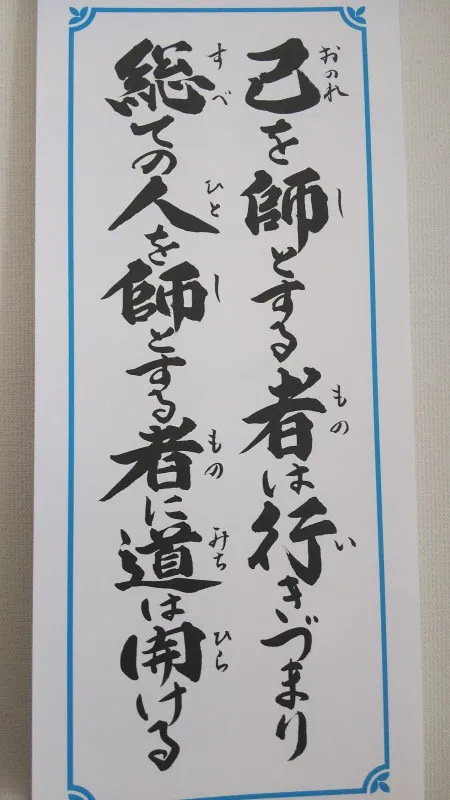 己を師とする者は行きづまり
おのれ
し
もの
い
総ての人を師とする者に道は開ける
すべ
ひと
し
もの
みち
ひら